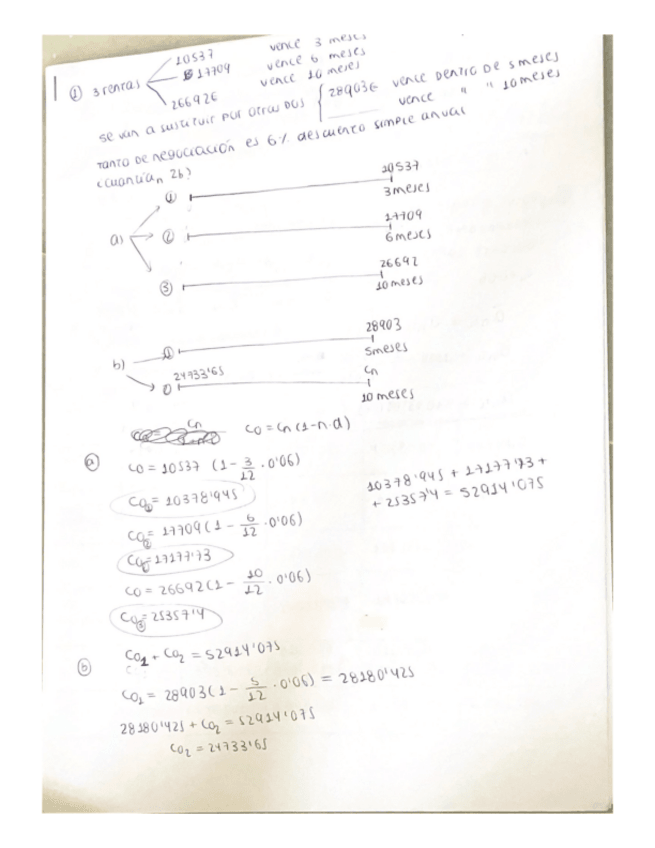 ① 3 rentas
10537 vence 3 meses
17709 vence 6 meses
26692€ vence 10 meses
se van a sustituir por otras dos { 28903€ vence dentro de 5 meses
vence " " 10 meses
tanto de negociación es 6% descuento simple anual
2b?
a)
① 10537
3 meses
② 17709
6 meses
③ 26692
10 meses
b)
① 28903
5 meses
24733'65 Cn
10 meses
Cn
Co = Cn (1-n.d)
ⓐ Co = 10537 (1 - 3/12 · 0'06)
Co① = 10378'945
10378'945 + 17177'73 +
+ 25357'4 = 52914'075
Co② = 17709 (1 - 6/12 · 0'06)
Co② = 17177'73
Co = 26692 (1 - 10/12 · 0'06)
Co③ = 25357'4
ⓑ Co1 + Co2 = 52914'075
Co1 = 28903 (1 - 5/12 · 0'06) = 28180'425
28180'425 + Co2 = 52914'075
Co2 = 24733'65